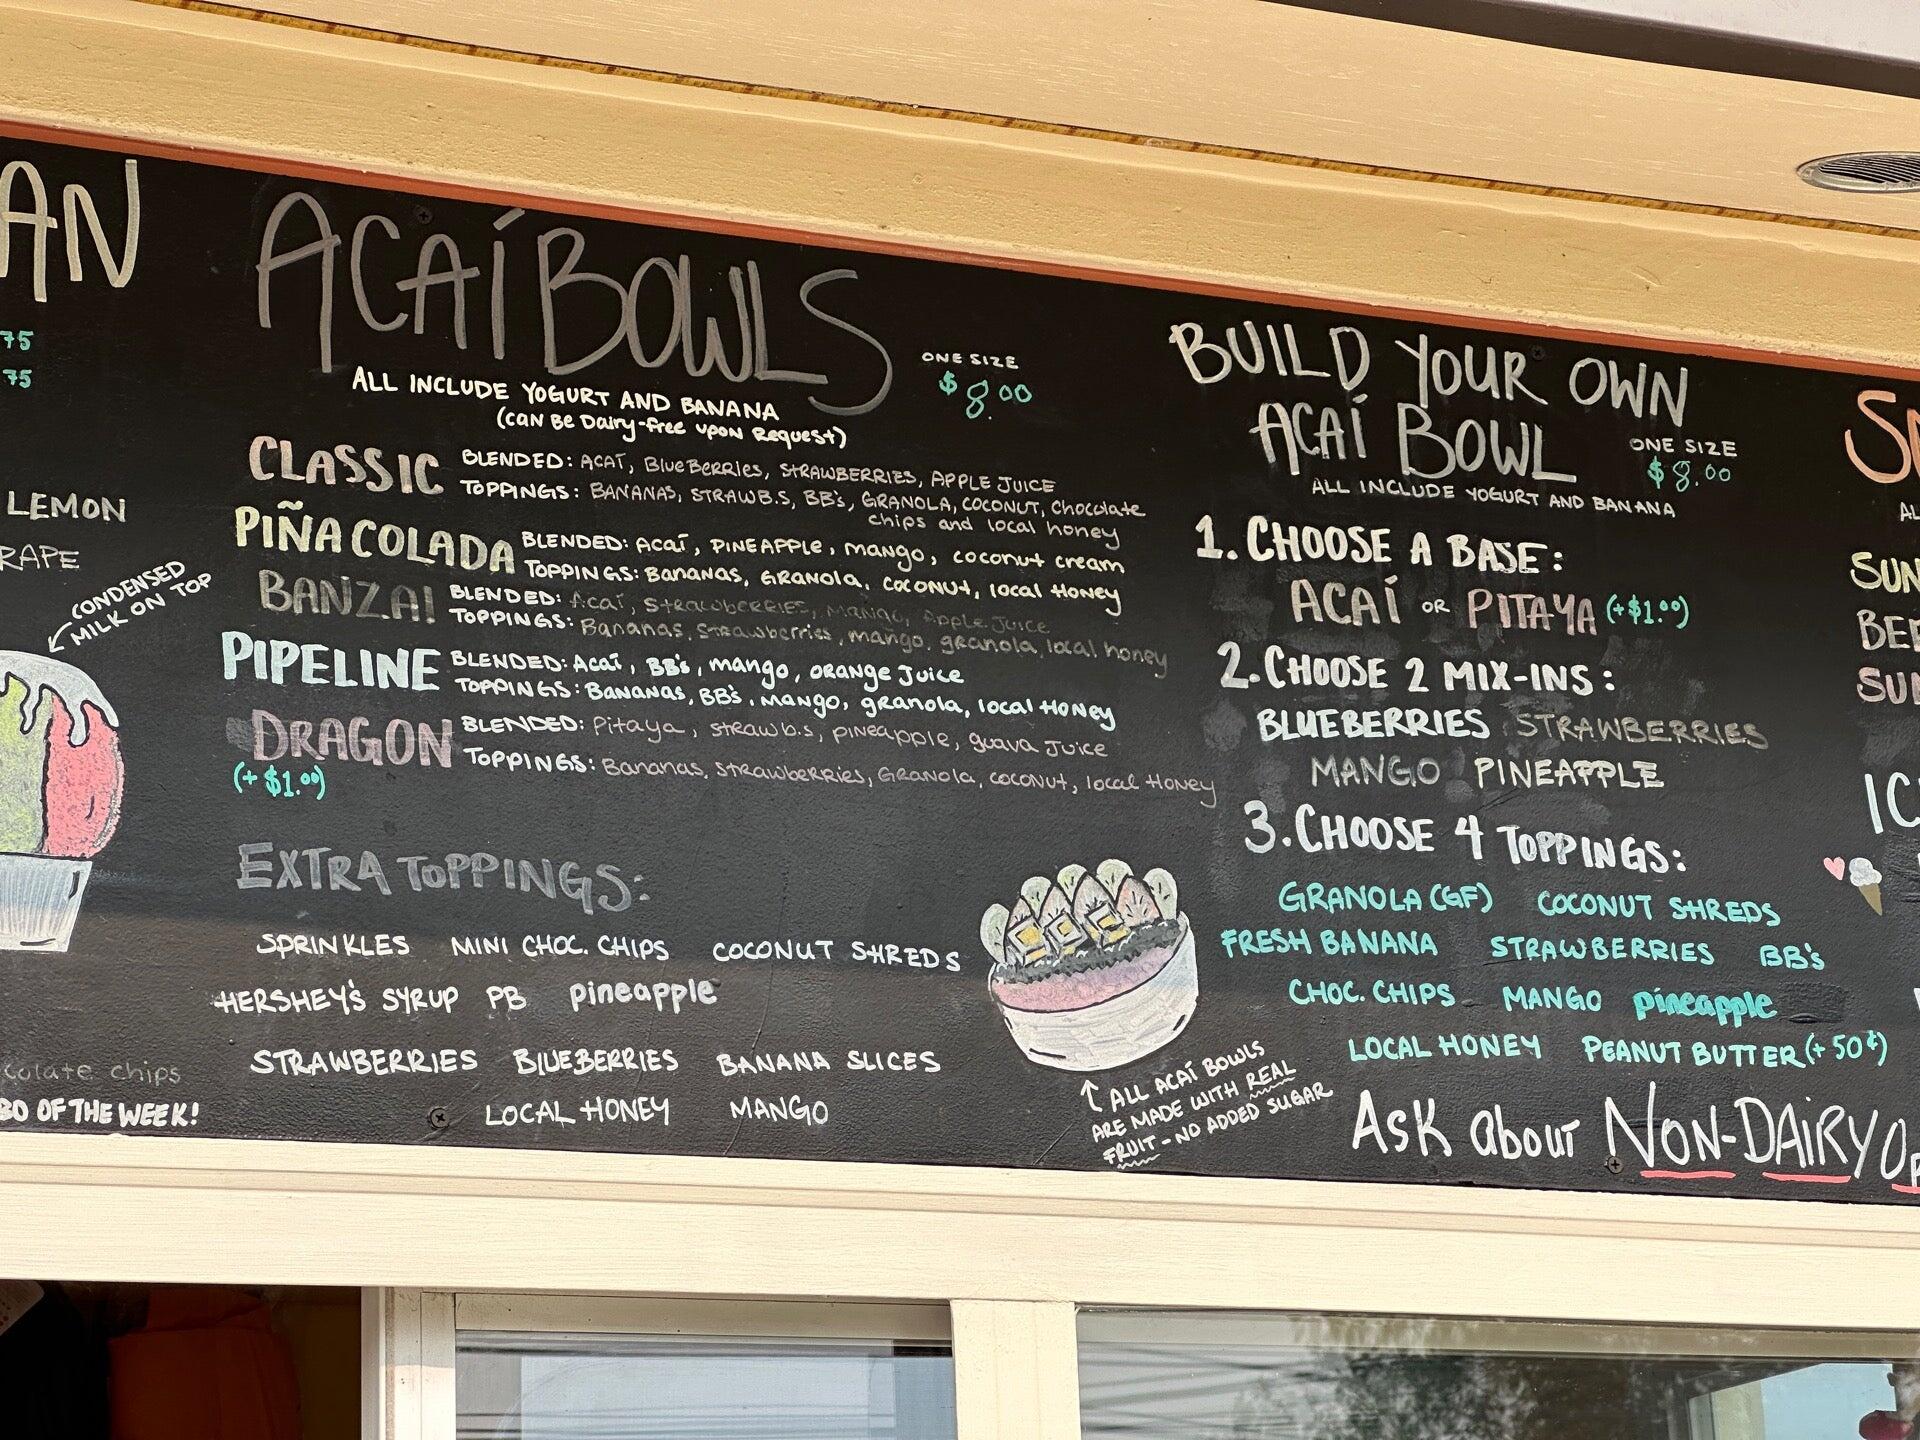 AN
75
75
LEMON
RAPE
CONDENSED
MILK ON TOP
colate chips
BO OF THE WEEK!
ACAÍ BOWLS
ONE SIZE
$8.00
ALL INCLUDE YOGURT AND BANANA
(can be Dairy-free upon Request)
CLASSIC
BLENDED: ACAÍ, BlueBerries, STRAWBERRIES, APPLE JUICE
TOPPINGS: BANANAS, STRAWB.S, BB's, GRANOLA, COCONUT, Chocolate
chips and local honey
PIÑA COLADA
BLENDED: Acaí, PINEAPPLE, mango, coconut cream
TOPPINGS: Bananas, GRANOLA, COCONUT, local Honey
BANZAI
BLENDED: Acaí, STRAWBERRIES, MANGO, Apple Juice
TOPPINGS: Bananas, Strawberries, mango, granola, local honey
PIPELINE
BLENDED: Acaí, BB's, mango, orange Juice
TOPPINGS: Bananas, BB's, mango, granola, local Honey
DRAGON
(+ $1.00)
BLENDED: Pitaya, strawb.s, pineapple, guava Juice
TOPPINGS: Bananas, Strawberries, Granola, coconut, local Honey
EXTRA TOPPINGS:
SPRINKLES MINI CHOC. CHIPS COCONUT SHREDS
HERSHEY'S SYRUP PB pineapple
STRAWBERRIES BLUEBERRIES BANANA SLICES
LOCAL HONEY MANGO
ALL ACAÍ BOWLS
ARE MADE WITH REAL
FRUIT - NO ADDED SUGAR
BUILD YOUR OWN
ACAÍ BOWL
ONE SIZE
$8.00
ALL INCLUDE YOGURT AND BANANA
1. CHOOSE A BASE:
ACAÍ OR PITAYA (+$1.00)
2. CHOOSE 2 MIX-INS:
BLUEBERRIES STRAWBERRIES
MANGO PINEAPPLE
3. CHOOSE 4 TOPPINGS:
GRANOLA (GF) COCONUT SHREDS
FRESH BANANA STRAWBERRIES BB's
CHOC. CHIPS MANGO pineapple
LOCAL HONEY PEANUT BUTTER (+ 50¢)
Ask about NON-DAIRY OP
AL
SUN
SUN
IC